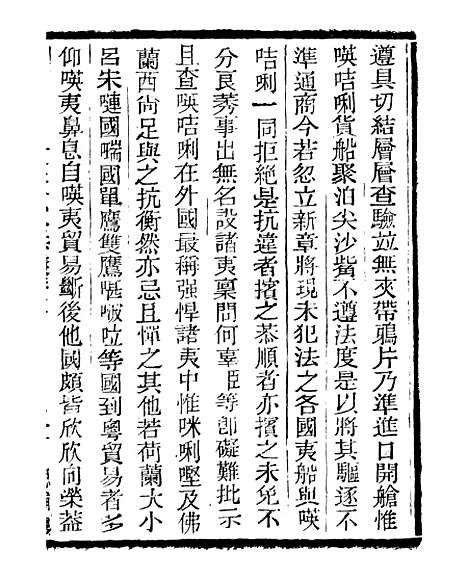 遵具切結層層查驗竝無夾帶鴉片乃準進口開艙惟
暎咭唎貨船聚泊尖沙觜不遵法度是以將其驅逐不
準通商今若忽立新章將現未犯法之各國夷船與暎
咭唎一同拒絶是抗違者擯之恭順者亦擯之未免不
分良莠事出無名設諸夷稟問何辜臣等卽礙難批示
且查暎咭唎在外國最稱强悍諸夷中惟咪唎㗴及佛
蘭西尙足與之抗衡然亦忌且憚之其他若荷蘭大小
呂宋嗹國喘國單鷹雙鷹啿𠸄𠯋等國到粵貿易者多
仰暎夷鼻息自暎夷貿易斷後他國頗皆欣欣向榮蓋